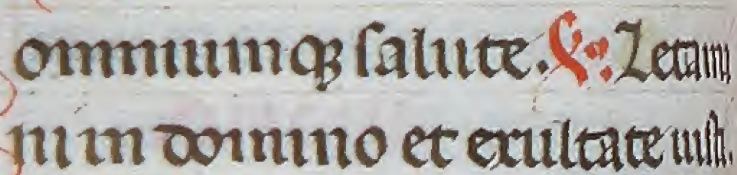 omniumqꝫ salute. ℣. Letami
ni in domino et exultate iusti.